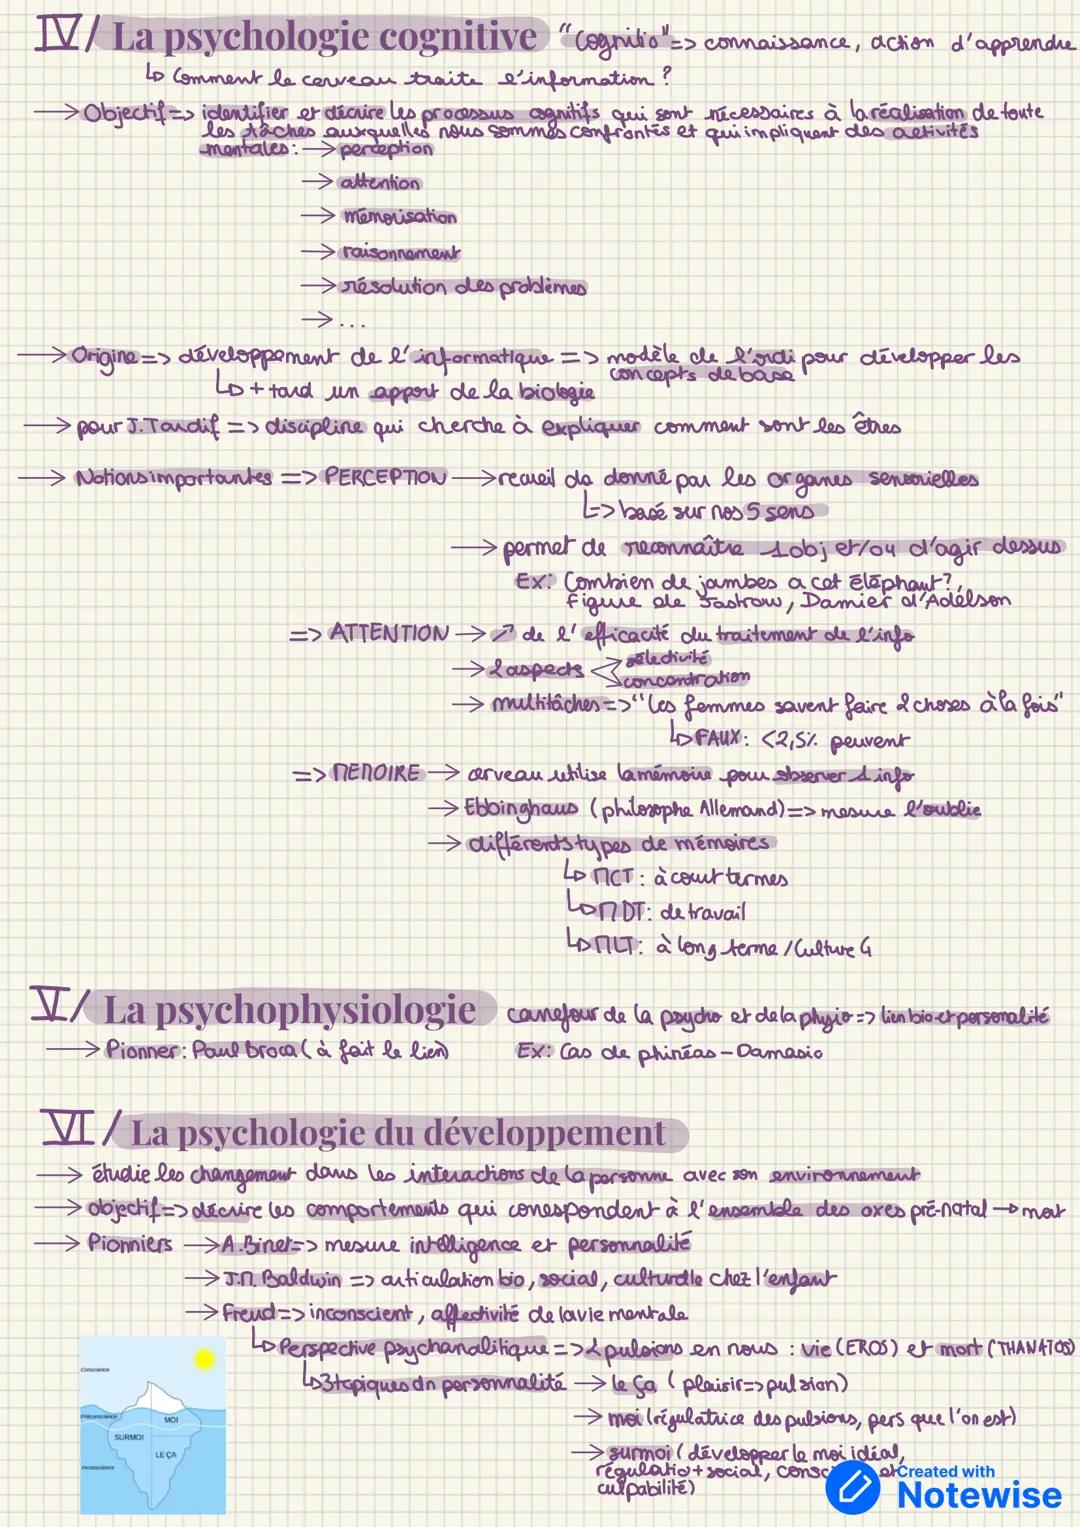 IV/ La psychologie cognitive "cognitio" => connaissance, action d'apprendre
↳ Comment le cerveau traite l'information ?
→ Objectif => identifier et décrire les processus cognitifs qui sont nécessaires à la réalisation de toute
les tâches auxquelles nous sommes confrontés et qui impliquent des activités
mentales : → perception
→ attention
→ mémorisation
→ raisonnement
→ résolution des problèmes
→ ...
→ Origine => développement de l'informatique => modèle de l'ordi pour développer les
concepts de base
↳ + tard un apport de la biologie
→ pour J.Tardif => discipline qui cherche à expliquer comment sont les êtres
→ Notions importantes => PERCEPTION → recueil da donné par les organes sensorielles
↳=> basé sur nos 5 sens
→ permet de reconnaître 1 obj et/ou d'agir dessus
Ex: Combien de jambes a cet éléphant?,
figure de Jastrow, Damier d'Adelson
=> ATTENTION → ↗ de l'efficacité du traitement de l'info
→ 2 aspects < sélectivité
concentration
→ multitâches => "les femmes savent faire 2 choses à la fois"
↳ FAUX : <2,5% peuvent
=> MEMOIRE → cerveau utilise la mémoire pour observer 1 info
→ Ebbinghaus (philosophe Allemand) => mesure l'oublie
→ différents types de mémoires
↳ MCT : à court termes
↳ MDT : de travail
↳ MLT : à long terme / Culture G
V/ La psychophysiologie carrefour de la psycho et de la physio => lien bio et personalité
→ Pionner : Paul broca ( à fait le lien) Ex: Cas de phinéas - Damasio
VI/ La psychologie du développement
→ étudie les changement dans les interactions de la personne avec son environnement
→ objectif => décrire les comportements qui correspondent à l'ensemble des axes pré-natal → mort
→ Pionniers → A.Binet => mesure intelligence et personnalité
→ J.M. Baldwin => articulation bio, social, culturelle chez l'enfant
→ Freud => inconscient, affectivité de la vie mentale
↳ Perspective psychanalitique => 2 pulsions en nous : vie (EROS) et mort (THANATOS)
↳ 3 topiques dn personnalité → le ça ( plaisir => pulsion)
→ moi (régulatrice des pulsions, pers que l'on est)
→ surmoi ( développer le moi idéal,
régulatio + social, consc et
culpabilité)
Conscience
Préconscience
MOI
SURMOI
LE ÇA
Inconscience
Created with
Notewise